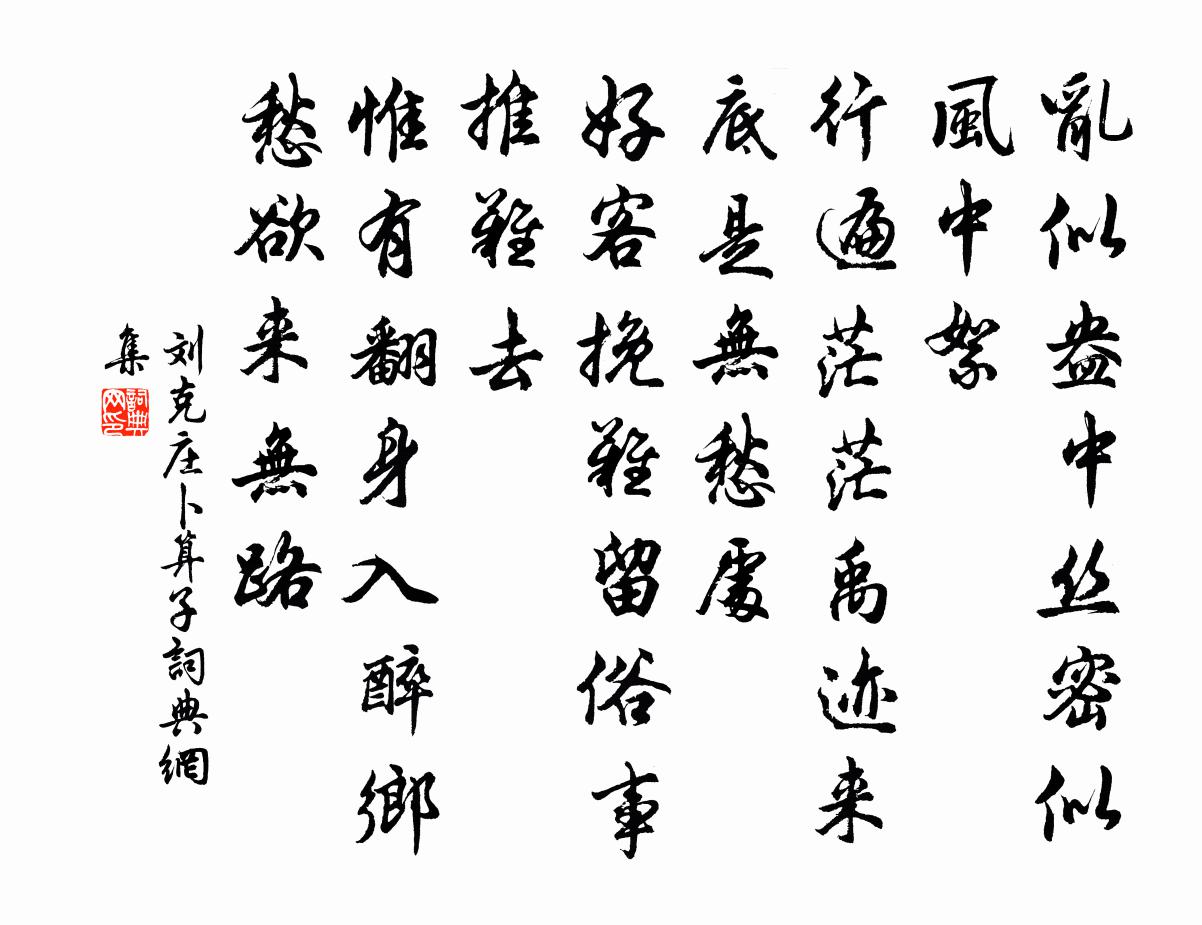 亂似盎中丝密似
風中絮
行遍茫茫禹迹来
底是無愁處
好客挽難留俗事
推難去
惟有翻身入醉鄉
愁欲来無路
刘克庄卜算子詞典網
集
詞典
网印